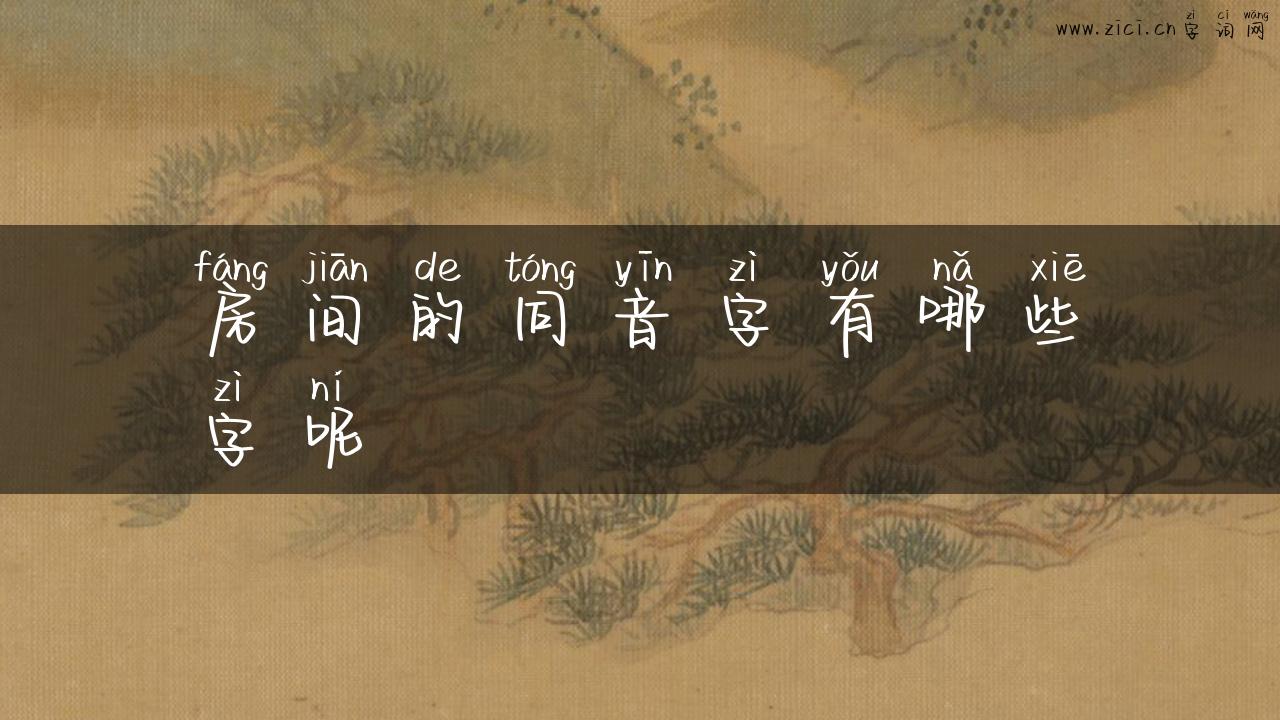 zì cí wǎng
www.zici.cn 字 词 网
fáng jiān de tóng yīn zì yǒu nǎ xiē
房 间 的 同 音 字 有 哪 些
zì ní
字 呢